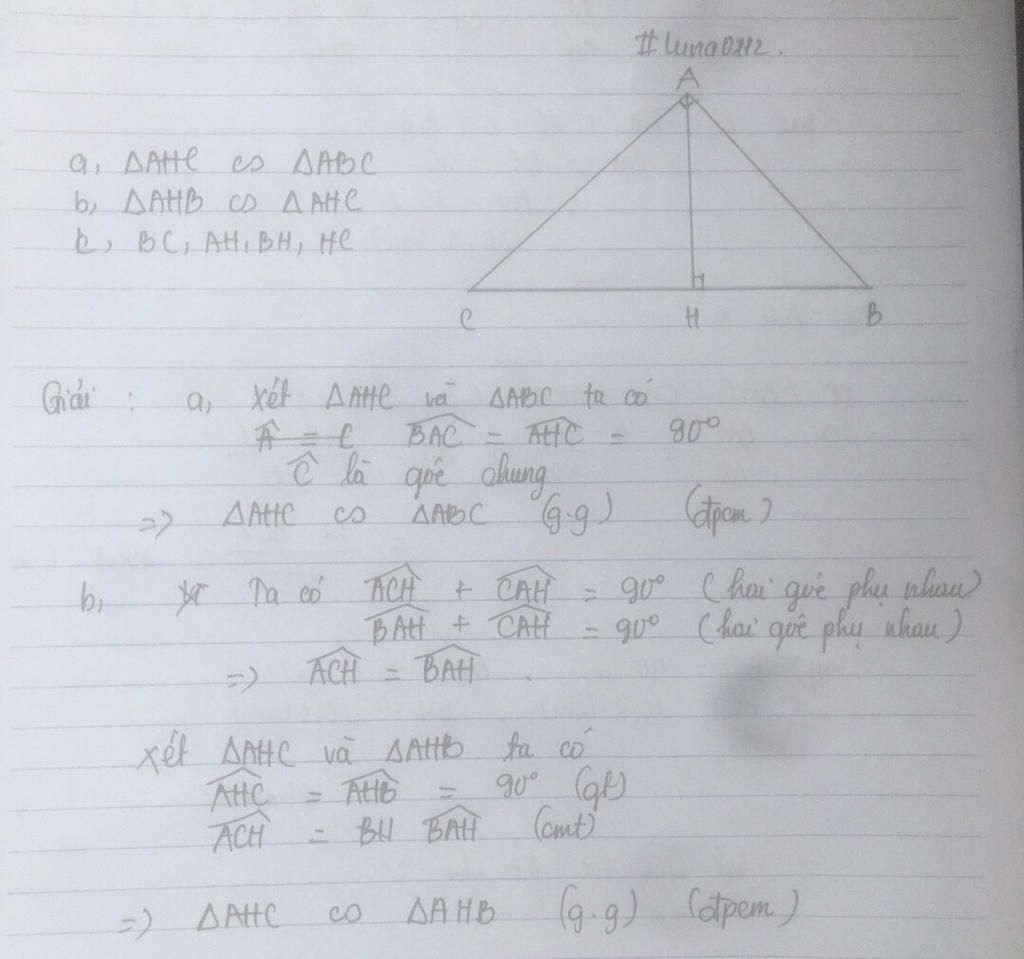 #luna0112.
A
a, ΔAHC ∽ ΔABC
b, ΔAHB ∽ ΔAHC
c, BC, AH, BH, HC
C H B
Giải : a, Xét ΔAHC và ΔABC ta có
A = C BAC = AHC = 90°
C là góc chung
=> ΔAHC ∽ ΔABC (g.g) (đpcm)
b, Ta có ACH + CAH = 90° (hai góc phụ nhau)
BAH + CAH = 90° (hai góc phụ nhau)
=> ACH = BAH .
Xét ΔAHC và ΔAHB ta có
AHC = AHB = 90° (gt)
ACH = BH BAH (cmt)
=> ΔAHC ∽ ΔAHB (g.g) (đpcm)